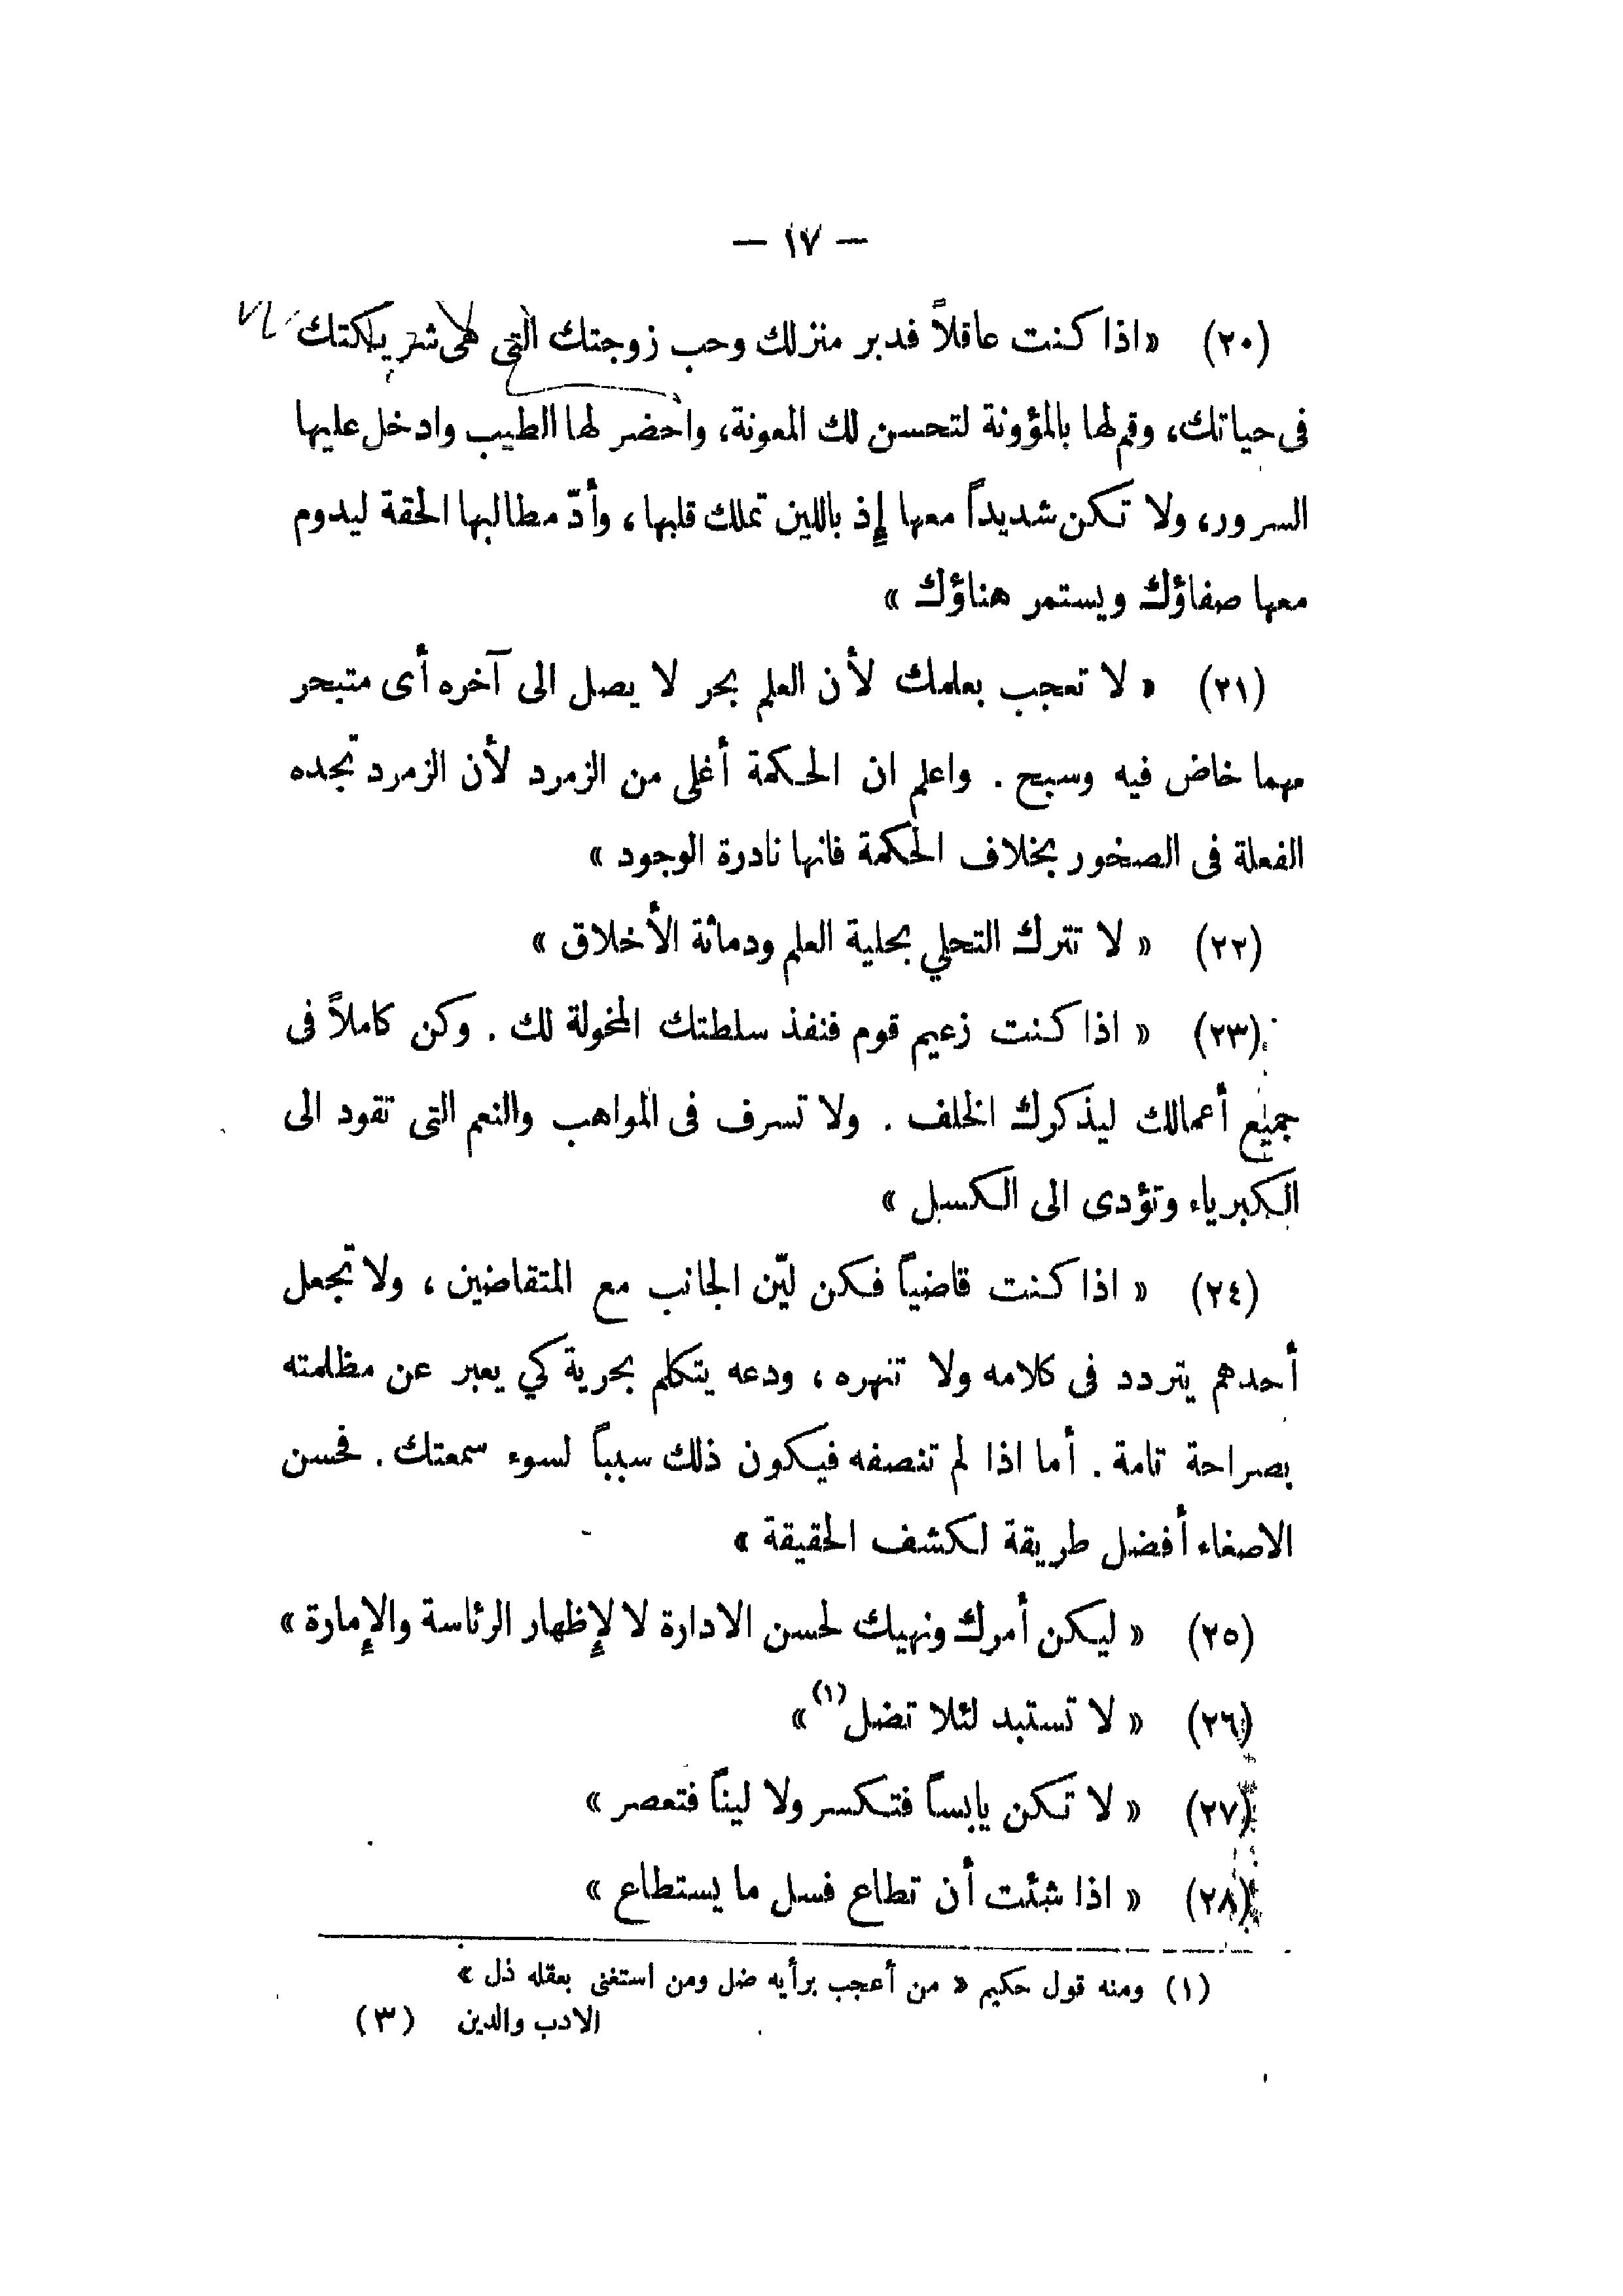 — ١٧ —
(٢٠) « اذا كنت عاقلاً فدبر منزلك وحب زوجتك التى هى شريكتك
فى حياتك، وقم لها بالمؤونة لتحسن لك المعونة، واحضر لها الطيب وادخل عليها
السرور، ولا تكن شديداً معها إذ باللين تملك قلبها، وأدّ مطالبها الحقة ليدوم
معها صفاؤك ويستمر هناؤك »
(٢١) « لا تعجب بعلمك لأن العلم بحر لا يصل الى آخره أى متبحر
مهما خاض فيه وسبح . واعلم ان الحكمة أغلى من الزمرد لأن الزمرد تجده
الفعلة فى الصخور بخلاف الحكمة فانها نادرة الوجود »
(٢٢) « لا تترك التحلي بحلية العلم ودماثة الأخلاق »
(٢٣) « اذا كنت زعيم قوم فنفذ سلطتك المخولة لك . وكن كاملاً فى
جميع أعمالك ليذكرك الخلف . ولا تسرف فى المواهب والنعم التى تقود الى
الكبرياء وتؤدى الى الكسل »
(٢٤) « اذا كنت قاضياً فكن ليّن الجانب مع المتقاضين ، ولا تجعل
أحدهم يتردد فى كلامه ولا تنهره ، ودعه يتكلم بحرية كي يعبر عن مظلمته
بصراحة تامة . أما اذا لم تنصفه فيكون ذلك سبباً لسوء سمعتك . فحسن
الاصغاء أفضل طريقة لكشف الحقيقة »
(٢٥) « ليكن أمرك ونهيك لحسن الادارة لا لإظهار الرئاسة والإمارة »
(٢٦) « لا تستبد لئلا تضل (١) »
(٢٧) « لا تكن يابساً فتكسر ولا ليناً فتعصر »
(٢٨) « اذا شئت أن تطاع فسل ما يستطاع »
(١) ومنه قول حكيم « من أعجب برأيه ضل ومن استغنى بعقله ذل »
الادب والدين (٣)